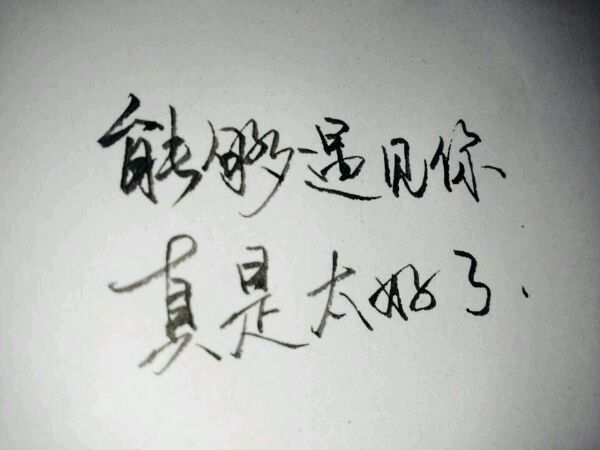 能够遇见你
真是太好了.